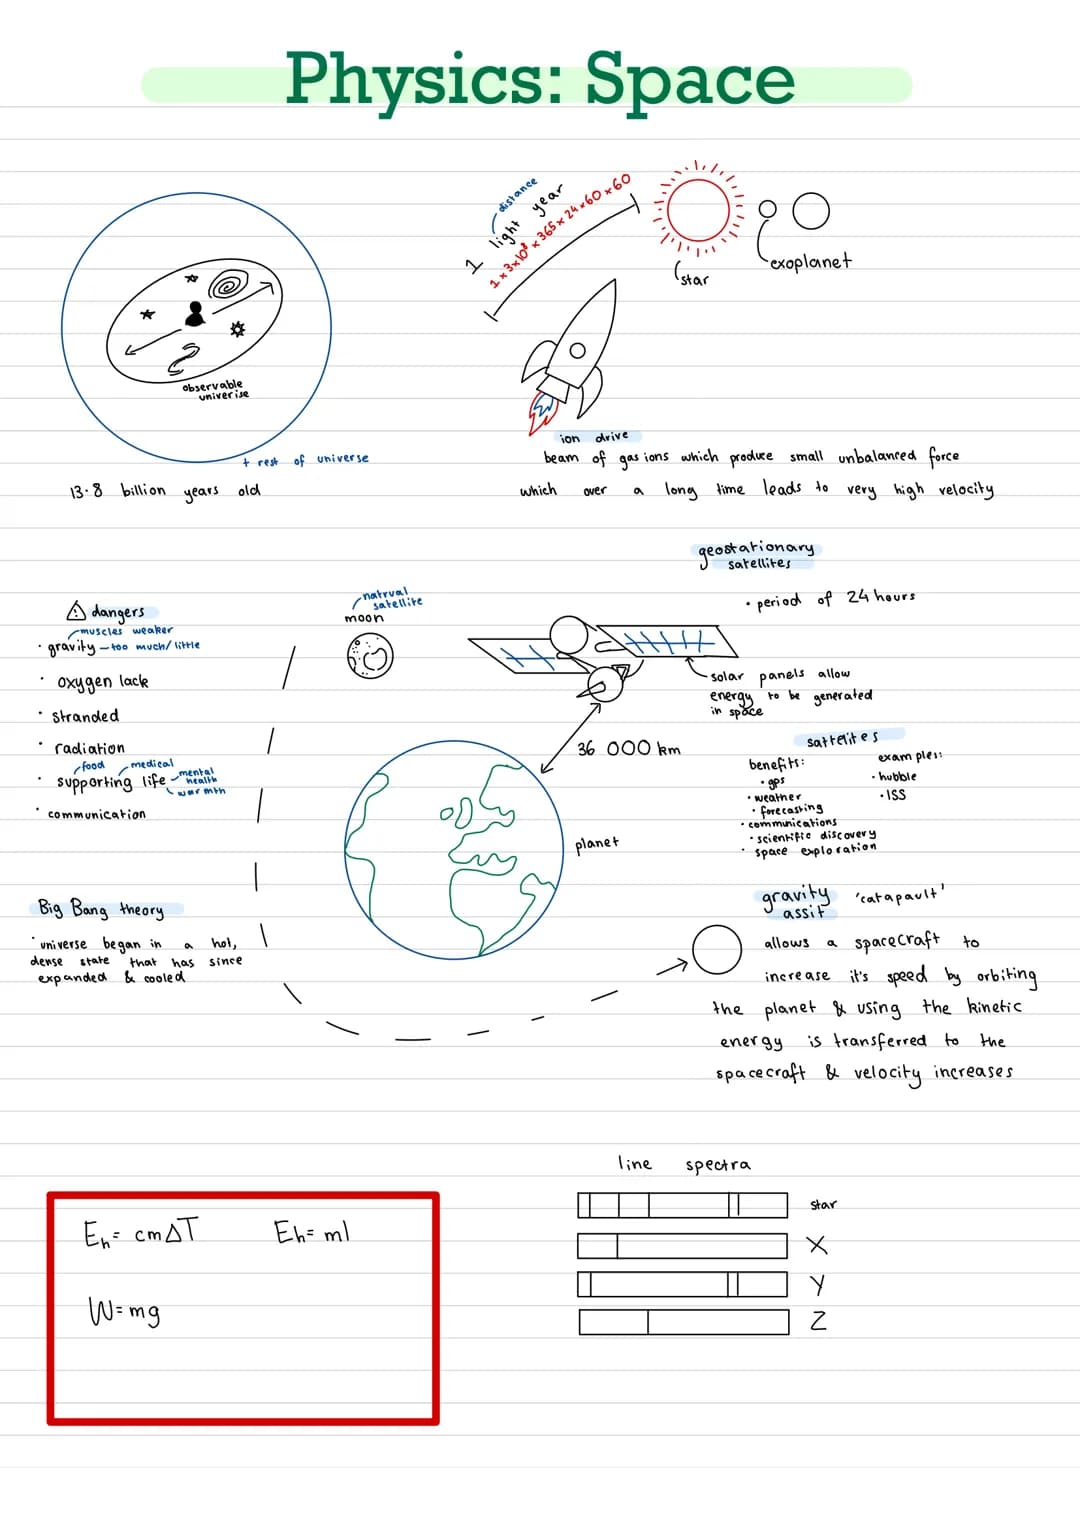 Physics: Space
distance
1 light year
1 x 3x10⁸ x 365 x 24 x 60 x 60
star
exoplanet
observable
univerise
+ rest of universe
13.8 billion years old
ion drive
beam of gas ions which produce small unbalanced force
which over a long time leads to very high velocity
geostationary
satellites
• period of 24 hours
natural
satellite
moon
solar panels allow
energy to be generated
in space
36 000 km
planet
⚠ dangers
muscles weaker
• gravity – too much/little
• oxygen lack
• stranded
• radiation
food medical
• supporting life mental
health
warmth
• communication
sattelites
benefits:
• gps
• weather
• forecasting
• communications
• scientific discovery
• space exploration
examples:
• hubble
• ISS
Big Bang theory
• universe began in a hot,
dense state that has since
expanded & cooled
gravity 'catapault'
assit
allows a spacecraft to
increase it's speed by orbiting
the planet & using the kinetic
energy is transferred to the
spacecraft & velocity increases
line spectra
star
X
Y
Z
Eₕ = cmΔT Eh = ml
W = mg